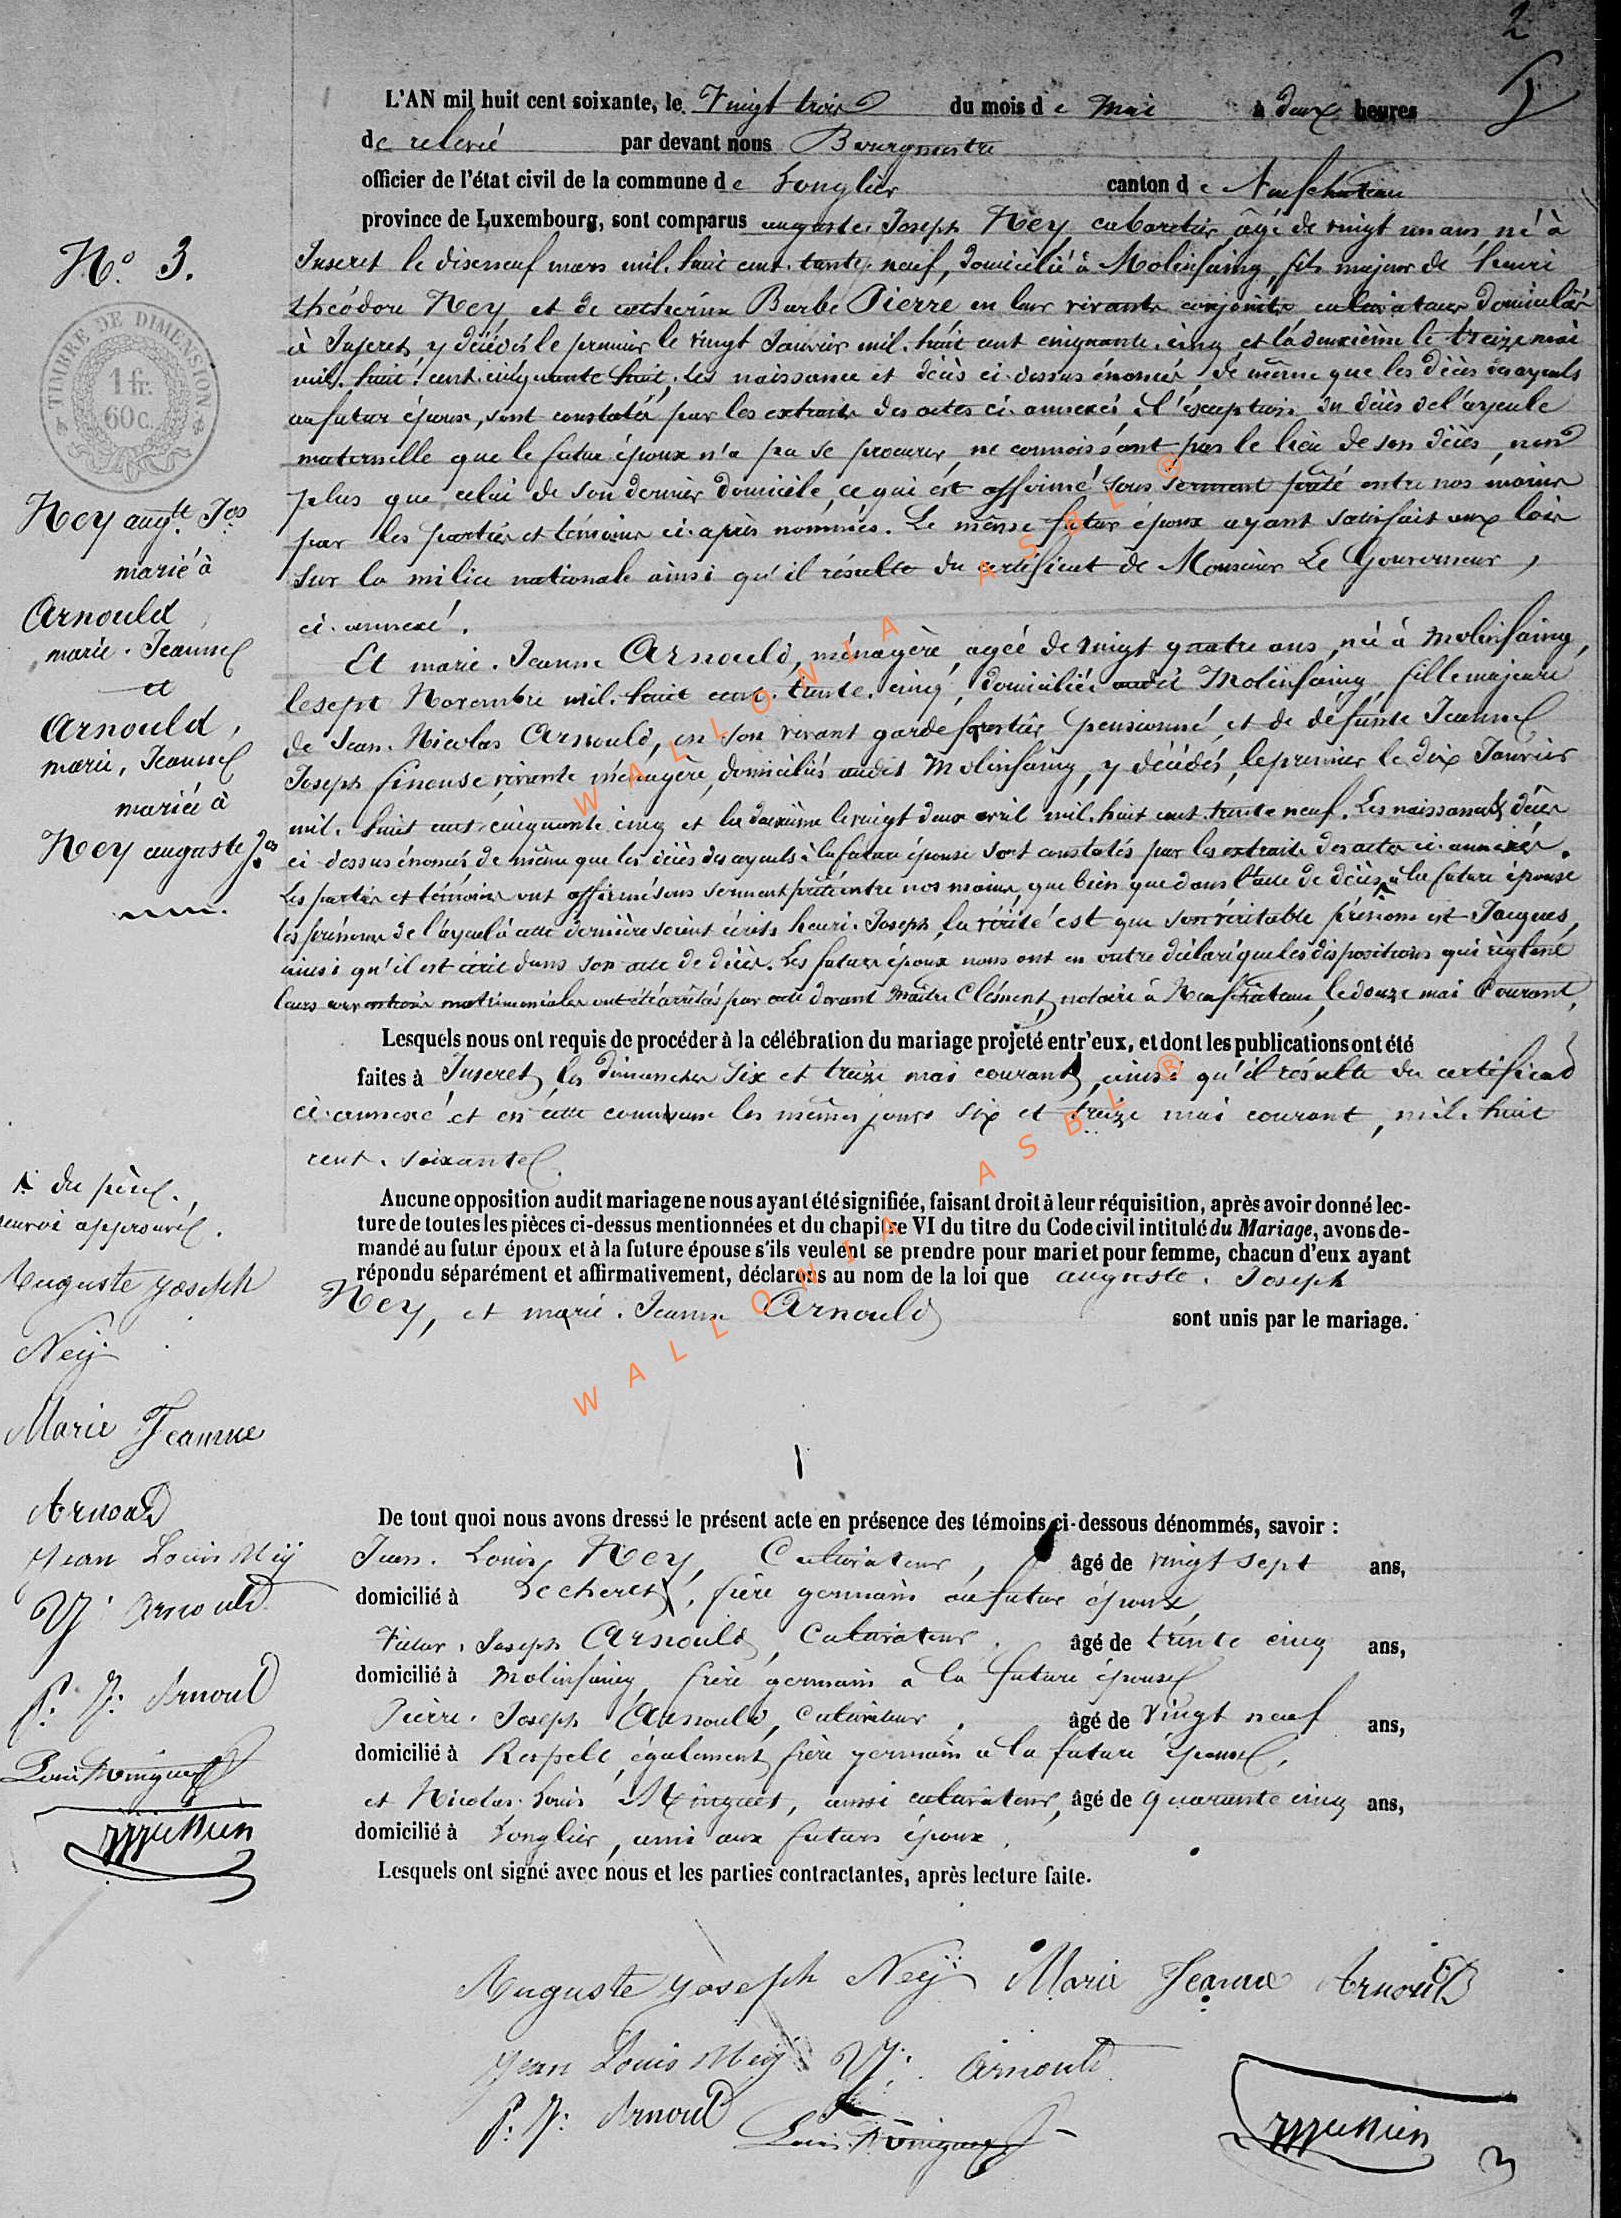 2
L'AN mil huit cent soixante, le Vingt trois du mois de mai à deux heures
de relevé par devant nous Bourgmestre
officier de l'état civil de la commune de Longlier canton de Neufchateau
province de Luxembourg, sont comparus auguste Joseph Ney, cabaretier, âgé de vingt un ans, né à
Juseret le dixneuf mars mil. huit cent. trente, neuf, domicilié à Molinfaing, fils majeur de henri
théodore Ney, et de catherine Barbe Pierre en leur vivants conjoints cultivateurs domiciliés
à Juseret, y décédés le premier le vingt Janvier mil. huit cent cinquante. cinq et la deuxième le treize mai
mil. huit. cent. cinquante huit, les naissance et décès ci-dessus énoncés, de même que les décès des ayeuls
au futur époux, sont constatés par les extraits des actes ci-annexés, à l'exception du décès de l'ayeule
maternelle que le futur époux n'a pu se procurer, ne connoissant pas le lieu de son décès, non
plus que celui de son dernier domicile, ce qui est affirmé sous serment prêté entre nos mains
par les parties et témoins ci-après nommés. Le même futur époux ayant satisfait aux lois
sur la milice nationale ainsi qu'il résulte du certificat de Monsieur Le Gouverneur,
ci-annexé.
Et marie. Jeanne Arnould, ménagère, agée de vingt quatre ans, née à Molinfaing,
le sept Novembre mil. huit cent. trente. cinq, domiciliée audit Molinfaing, fille majeure
de Jean. Nicolas Arnould, en son vivant garde forestier pensionné, et de défunte Jeanne
Joseph Sinouse, vivante ménagère, domiciliés audit Molinfaing, y décédés, le premier le dix Janvier
mil. huit cent. cinquante cinq et la deuxième le vingt deux avril mil. huit cent trente neuf. Les naissance et décès
ci dessus énoncés de même que les décès des ayeuls à la future épouse sont constatés par les extraits des actes ci-annexés.
Les parties et témoins ont affirmé sous serment prêté entre nos mains, que bien que dans l'acte de décès à la future épouse
les prénoms de l'ayeul à cette dernière soient écrits henri. Joseph, la vérité est que son véritable prénom est Jacques,
ainsi qu'il est écrit dans son acte de décès. Les futurs époux nous ont en outre déclaré que les dispositions qui règlent
leurs conventions matrimoniales ont été arrêtés par acte devant Maître Clément, notaire à Neufchâteau, le douze mai Courant,
Lesquels nous ont requis de procéder à la célébration du mariage projeté entr'eux, et dont les publications ont été
faites à Juseret, les dimanches six et treize mai courant, ainsi qu'il résulte du certificat
ci-annexé et en cette commune les mêmes jours six et treize mai courant, mil. huit
cent. soixante.
Aucune opposition audit mariage ne nous ayant été signifiée, faisant droit à leur réquisition, après avoir donné lec-
ture de toutes les pièces ci-dessus mentionnées et du chapitre VI du titre du Code civil intitulé du Mariage, avons de-
mandé au futur époux et à la future épouse s'ils veulent se prendre pour mari et pour femme, chacun d'eux ayant
répondu séparément et affirmativement, déclarons au nom de la loi que auguste. Joseph
Ney, et marie. Jeanne Arnould sont unis par le mariage.
De tout quoi nous avons dressé le présent acte en présence des témoins ci-dessous dénommés, savoir :
Jean. Louis Ney, Cultivateur, âgé de vingt sept ans,
domicilié à Lecheret, frère germain au futur époux,
Victor. Joseph Arnould, Cultivateur. âgé de trente cinq ans,
domicilié à Molinfaing, frère germain à la future épouse
Pierre. Joseph Arnould, Cultivateur. âgé de vingt neuf ans,
domicilié à Respelt, également frère germain à la future épouse,
et Nicolas. Louis Minguet, aussi cultivateur, âgé de quarante cinq ans,
domicilié à Longlier, ami aux futurs époux.
Lesquels ont signé avec nous et les parties contractantes, après lecture faite.
Auguste Joseph Neÿ Marie Jeanne Arnould
Jean Louis Neÿ V J. Arnould
P. J. Arnould Louis Minguet
3
N.º 3.
TIMBRE DE DIMENSION
1 fr.
60 c.
Ney aug.te Jos
marié à
Arnould
marie. Jeanne
et
Arnould,
marie, Jeanne
mariée à
Ney auguste Jos
du père.
renvoi approuvé.
Auguste Joseph
Neÿ
Marie Jeanne
Arnould
Jean Louis Neÿ
V J. Arnould
P. J. Arnould
Louis Minguet
WALLONIA ASBL ®
WALLONIA ASBL ®